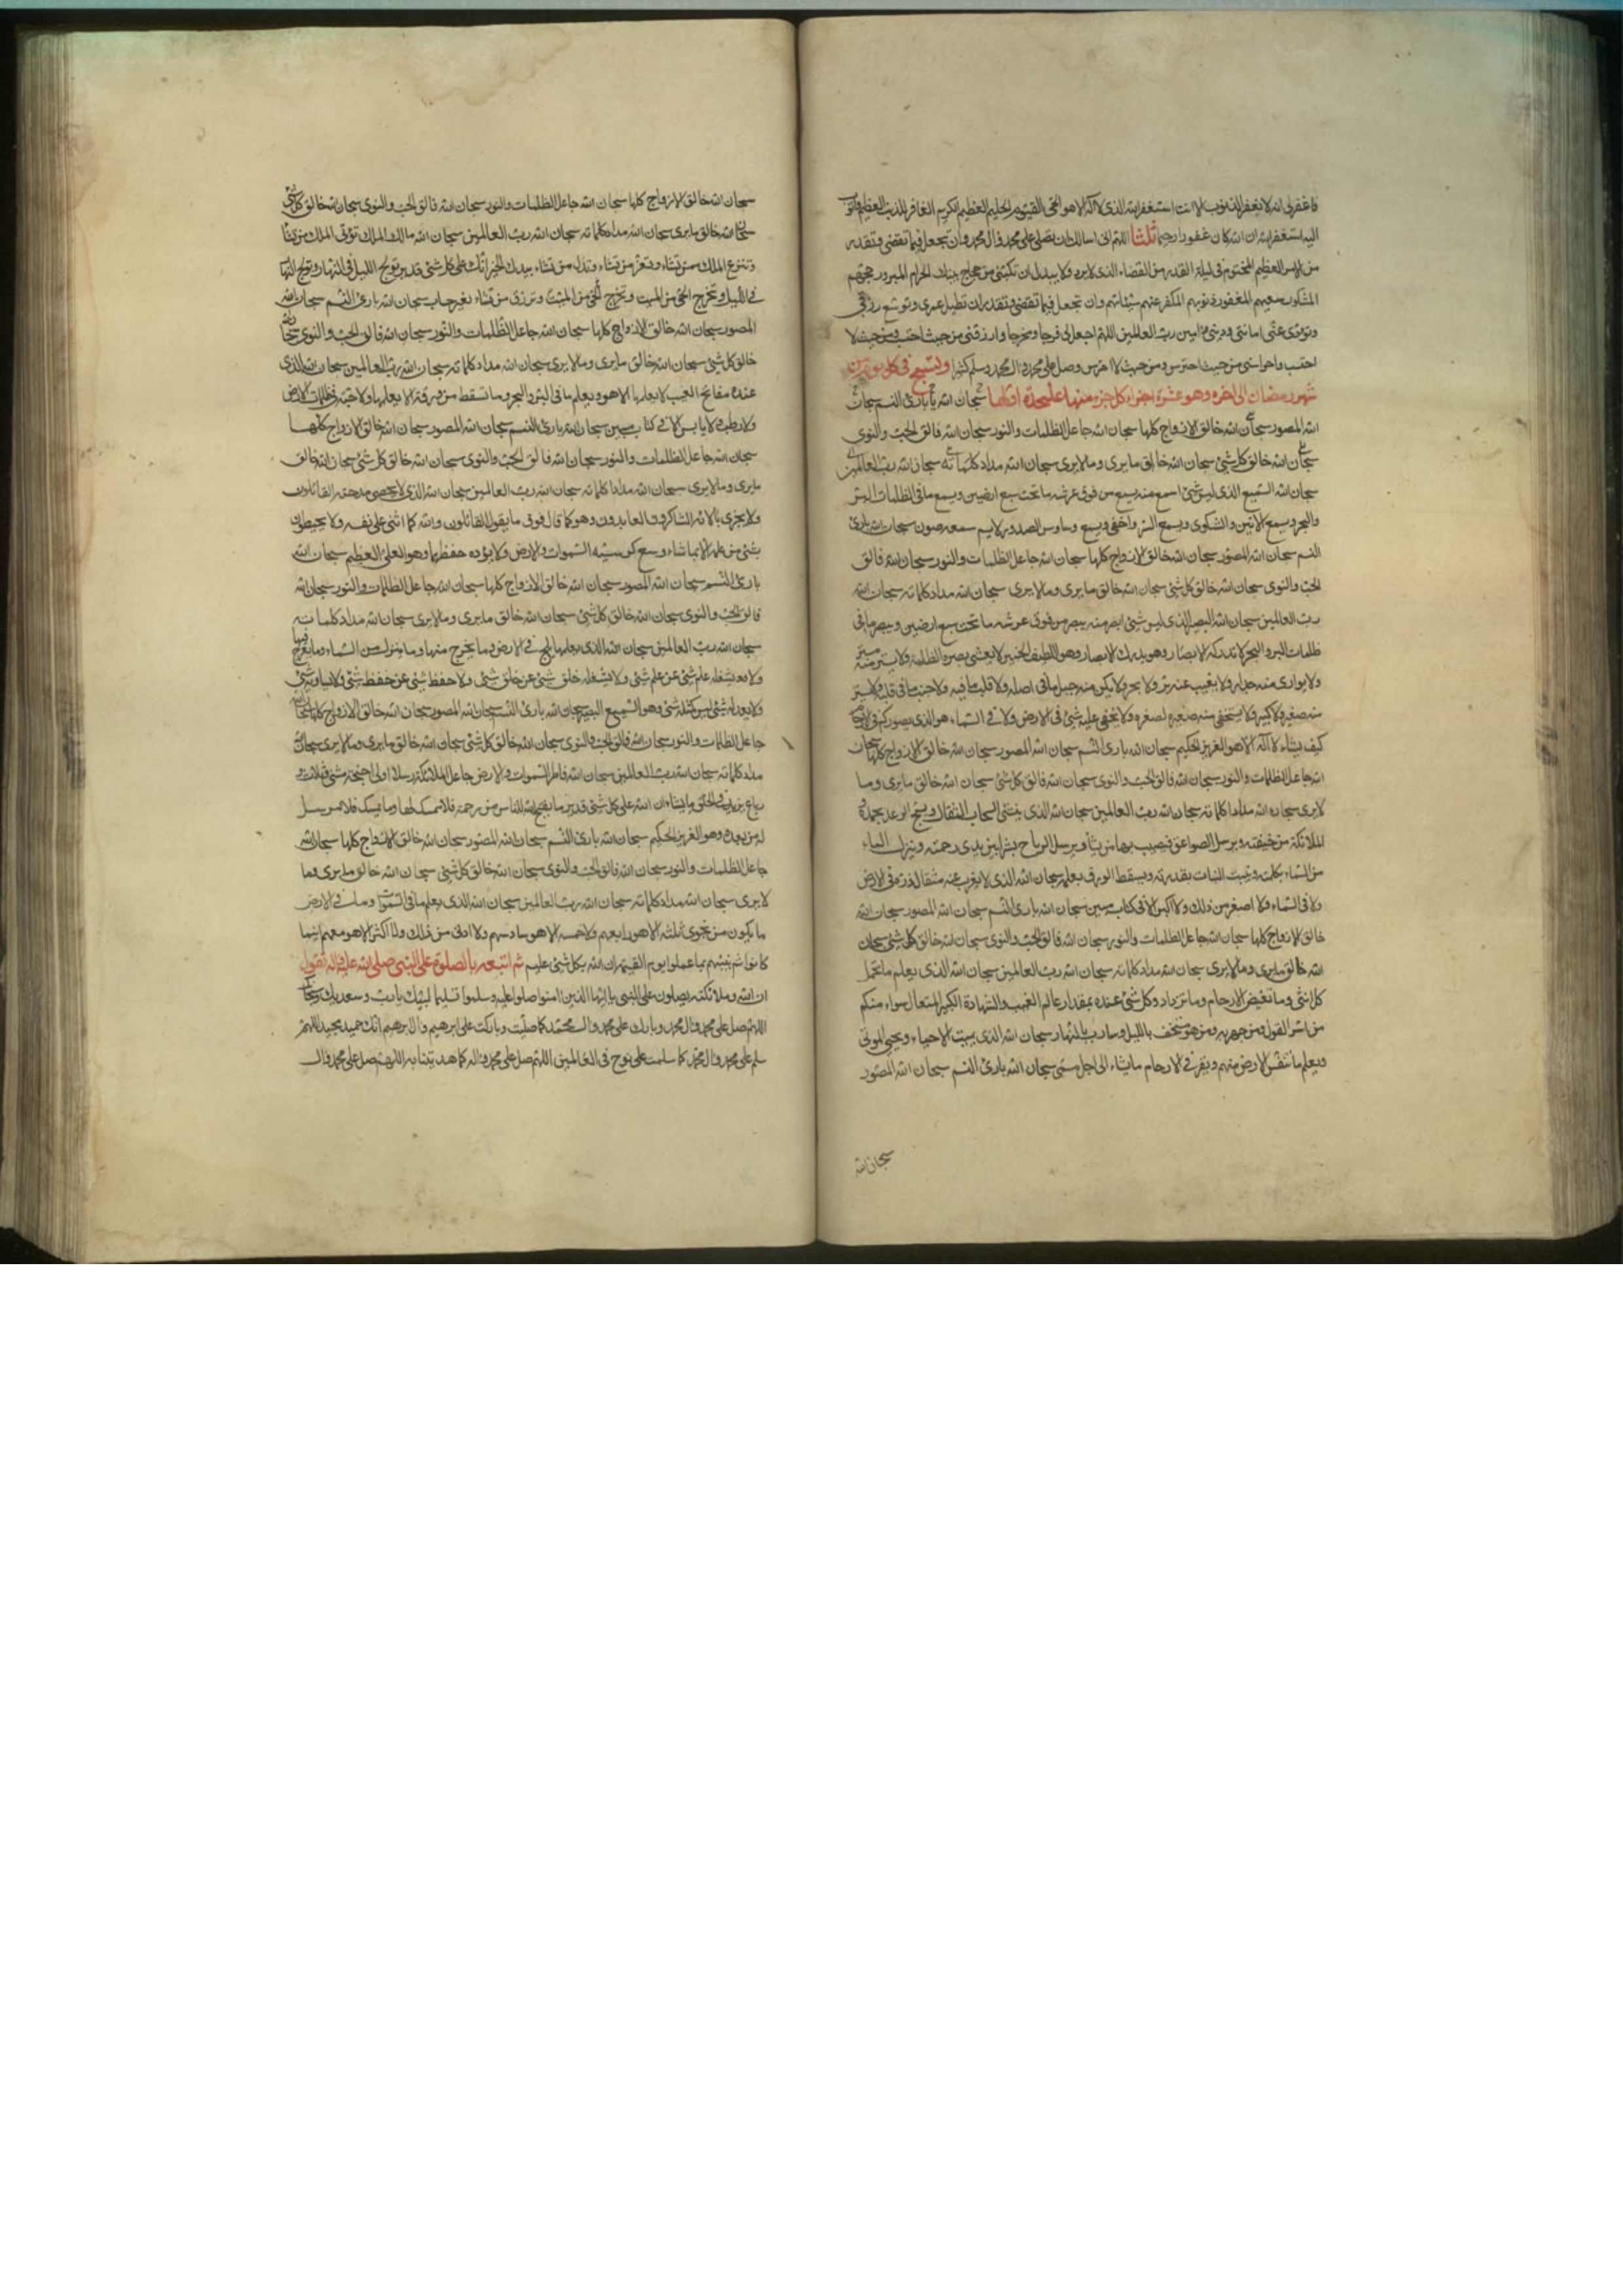 فاغفرلی انه لا یغفر الذنوب الا انت استغفر الله الذی لا اله الا هو الحی القیوم الحلیم العظیم الکریم الغافر للذنب العظیم واتوب
الیه استغفر الله ان الله کان غفورا رحیما ثلثا اللهم انی اسالك ان تصلی علی محمد وال محمد وان تجعل فیما تقضی وتقدر
من الامر العظیم المحتوم فی لیلة القدر من القضاء الذی لا یرد ولا یبدل ان تکتبنی من حجاج بیتك الحرام المبرور حجهم
المشکور سعیهم المغفورة ذنوبهم المکفر عنهم سیئاتهم وان تجعل فیما تقضی وتقدر ان تطیل عمری وتوسع رزقی
وتؤدی عنی امانتی ودینی امین رب العالمین اللهم اجعل لی فرجا ومخرجا وارزقنی من حیث احتسب ومن حیث لا
احتسب واحرسنی من حیث احترس ومن حیث لا احترس وصل علی محمد وال محمد وسلم کثیرا وتسبح فی کل یوم من
شهر رمضان الی اخره وهو عشرة اجزاء کل جزء منها علیحدة اولها سبحان الله بارئ النسم سبحان
الله المصور سبحان الله خالق الازواج کلها سبحان الله جاعل الظلمات والنور سبحان الله فالق الحب والنوی
سبحان الله خالق کل شئ سبحان الله خالق ما یری وما لا یری سبحان الله مداد کلماته سبحان الله رب العالمین
سبحان الله السمیع الذی لیس شئ اسمع منه یسمع من فوق عرشه ما تحت سبع ارضین ویسمع ما فی الظلمات البر
والبحر ویسمع الانین والشکوی ویسمع السر واخفی ویسمع وساوس الصدور لا یسم سمعه صوت سبحان الله بارئ
النسم سبحان الله المصور سبحان الله خالق الازواج کلها سبحان الله جاعل الظلمات والنور سبحان الله فالق
الحب والنوی سبحان الله خالق کل شئ سبحان الله خالق ما یری وما لا یری سبحان الله مداد کلماته سبحان الله
رب العالمین سبحان الله البصیر الذی لیس شئ ابصر منه یبصر من فوق عرشه ما تحت سبع ارضین ویبصر ما فی
ظلمات البر والبحر لا تدرکه الابصار وهو یدرك الابصار وهو اللطیف الخبیر لا یغشی بصره الظلمة ولا یستر منه ستر
ولا یواری منه جدار ولا یغیب عنه بر ولا بحر ولا یکن منه جبل ما فی اصله ولا قلب ما فیه ولا جنب ما فی قلبه ولا یستر
منه صغیر ولا کبیر ولا یستخفی منه صغیر لصغره ولا یخفی علیه شئ فی الارض ولا فی السماء هو الذی یصورکم فی الارحام
کیف یشاء لا اله الا هو العزیز الحکیم سبحان الله بارئ النسم سبحان الله المصور سبحان الله خالق الازواج کلها سبحان
الله جاعل الظلمات والنور سبحان الله فالق الحب والنوی سبحان الله خالق کل شئ سبحان الله خالق ما یری وما
لا یری سبحان الله مداد کلماته سبحان الله رب العالمین سبحان الله الذی ینشئ السحاب الثقال ویسبح الرعد بحمده و
الملائکة من خیفته ویرسل الصواعق فیصیب بها من یشاء ویرسل الریاح بشرا بین یدی رحمته وینزل الماء
من السماء بکلمته وینبت النبات بقدرته ویسقط الورق بعلمه سبحان الله الذی لا یعزب عنه مثقال ذرة فی الارض
ولا فی السماء ولا اصغر من ذلك ولا اکبر الا فی کتاب مبین سبحان الله بارئ النسم سبحان الله المصور سبحان الله
خالق الازواج کلها سبحان الله جاعل الظلمات والنور سبحان الله فالق الحب والنوی سبحان الله خالق کل شئ سبحان
الله خالق ما یری وما لا یری سبحان الله مداد کلماته سبحان الله رب العالمین سبحان الله الذی یعلم ما تحمل
کل انثی وما تغیض الارحام وما تزداد وکل شئ عنده بمقدار عالم الغیب والشهادة الکبیر المتعال سواء منکم
من اسر القول ومن جهر به ومن هو مستخف باللیل وسارب بالنهار سبحان الله الذی یمیت الاحیاء ویحیی الموتی
ویعلم ما تنقص الارض منهم ویقر فی الارحام ما یشاء الی اجل مسمی سبحان الله بارئ النسم سبحان الله المصور
سبحان الله
سبحان الله خالق الازواج کلها سبحان الله جاعل الظلمات والنور سبحان الله فالق الحب والنوی سبحان الله خالق کل شئ
سبحان الله خالق ما یری سبحان الله مداد کلماته سبحان الله رب العالمین سبحان الله مالك الملك تؤتی الملك من تشاء
وتنزع الملك ممن تشاء وتعز من تشاء وتذل من تشاء بیدك الخیر انك علی کل شئ قدیر تولج اللیل فی النهار وتولج النهار
فی اللیل وتخرج الحی من المیت وتخرج المیت من الحی وترزق من تشاء بغیر حساب سبحان الله بارئ النسم سبحان الله
المصور سبحان الله خالق الازواج کلها سبحان الله جاعل الظلمات والنور سبحان الله فالق الحب والنوی سبحان الله
خالق کل شئ سبحان الله خالق ما یری وما لا یری سبحان الله مداد کلماته سبحان الله رب العالمین سبحان الله الذی
عنده مفاتح الغیب لا یعلمها الا هو ویعلم ما فی البر والبحر وما تسقط من ورقة الا یعلمها ولا حبة فی ظلمات الارض
ولا رطب ولا یابس الا فی کتاب مبین سبحان الله بارئ النسم سبحان الله المصور سبحان الله خالق الازواج کلها
سبحان الله جاعل الظلمات والنور سبحان الله فالق الحب والنوی سبحان الله خالق کل شئ سبحان الله خالق
ما یری وما لا یری سبحان الله مداد کلماته سبحان الله رب العالمین سبحان الله الذی لا یحصی مدحته القائلون
ولا یجزی بالائه الشاکرون العابدون وهو کما قال فوق ما یقول القائلون والله کما اثنی علی نفسه ولا یحیطون
بشئ من علمه الا بما شاء وسع کرسیه السموات والارض ولا یؤده حفظهما وهو العلی العظیم سبحان الله
بارئ النسم سبحان الله المصور سبحان الله خالق الازواج کلها سبحان الله جاعل الظلمات والنور سبحان الله
فالق الحب والنوی سبحان الله خالق کل شئ سبحان الله خالق ما یری وما لا یری سبحان الله مداد کلماته
سبحان الله رب العالمین سبحان الله الذی یعلم ما یلج فی الارض وما یخرج منها وما ینزل من السماء وما یعرج فیها
ولا یشغله علم شئ عن علم شئ ولا یشغله خلق شئ عن خلق شئ ولا حفظ شئ عن حفظ شئ ولا یساویه شئ
ولا یعدله شئ لیس کمثله شئ وهو السمیع البصیر سبحان الله بارئ النسم سبحان الله المصور سبحان الله خالق الازواج کلها سبحان الله
جاعل الظلمات والنور سبحان الله فالق الحب والنوی سبحان الله خالق کل شئ سبحان الله خالق ما یری وما لا یری سبحان الله
مداد کلماته سبحان الله رب العالمین سبحان الله فاطر السموات والارض جاعل الملائکة رسلا اولی اجنحة مثنی وثلاث و
رباع یزید فی الخلق ما یشاء ان الله علی کل شئ قدیر ما یفتح الله للناس من رحمة فلا ممسك لها وما یمسك فلا مرسل
له من بعده وهو العزیز الحکیم سبحان الله بارئ النسم سبحان الله المصور سبحان الله خالق الازواج کلها سبحان الله
جاعل الظلمات والنور سبحان الله فالق الحب والنوی سبحان الله خالق کل شئ سبحان الله خالق ما یری وما
لا یری سبحان الله مداد کلماته سبحان الله رب العالمین سبحان الله الذی یعلم ما فی السموات وما فی الارض
ما یکون من نجوی ثلثة الا هو رابعهم ولا خمسة الا هو سادسهم ولا ادنی من ذلك ولا اکثر الا هو معهم اینما
کانوا ثم ینبئهم بما عملوا یوم القیمة ان الله بکل شئ علیم ثم اتبعه بالصلوة علی النبی صلی الله علیه واله تقول
ان الله وملائکته یصلون علی النبی یا ایها الذین امنوا صلوا علیه وسلموا تسلیما لبیك یا رب وسعدیك وسبحانك
اللهم صل علی محمد وال محمد وبارك علی محمد وال محمد کما صلیت وبارکت علی ابرهیم وال ابرهیم انك حمید مجید اللهم
سلم علی محمد وال محمد کما سلمت علی نوح فی العالمین اللهم صل علی محمد واله کما هدیتنا به اللهم صل علی محمد وال